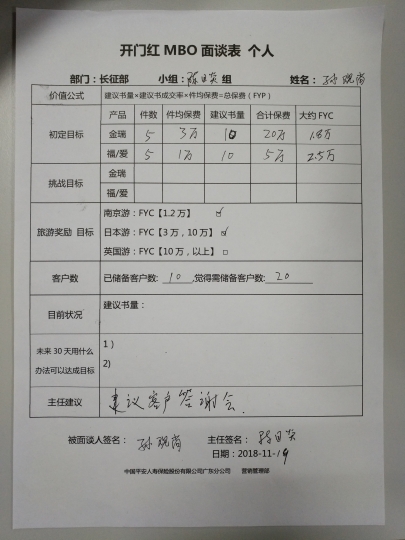 开门红 MBO 面谈表 个人
部门：长征部 小组： 组 姓名：孙
价值公式 建议书量×建议书成交率×件均保费=总保费（FYP）
产品 件数 件均保费 建议书量 合计保费 大约 FYC
初定目标 金瑞 5 3万 10 20万 1.8万
福/爱 5 1万 10 5万 2.5万
挑战目标 金瑞
福/爱
旅游奖励 目标 南京游：FYC【1.2 万】 ☑
日本游：FYC【3 万，10 万】 ☑
英国游：FYC【10 万，以上】 □
客户数 已储备客户数: 10 ,觉得需储备客户数: 20
目前状况 建议书量：
未来 30 天用什么办法可以达成目标 1）
2)
主任建议 建议客户答谢会.
被面谈人签名： 孙 主任签名：
日期：2018-11-19
中国平安人寿保险股份有限公司广东分公司 营销管理部